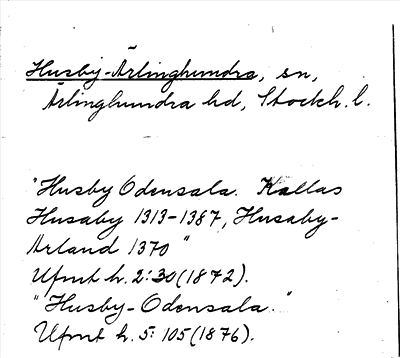 Husby-Ärlinghundra, sn,
Ärlinghundra hd, Stockh. l.
"Husby Odensala. Kallas
Husaby 1313-1387, Husaby-
Arland 1370"
Ufmt h. 2: 30 (1872).
"Husby-Odensala."
Ufmt h. 5: 105 (1876).